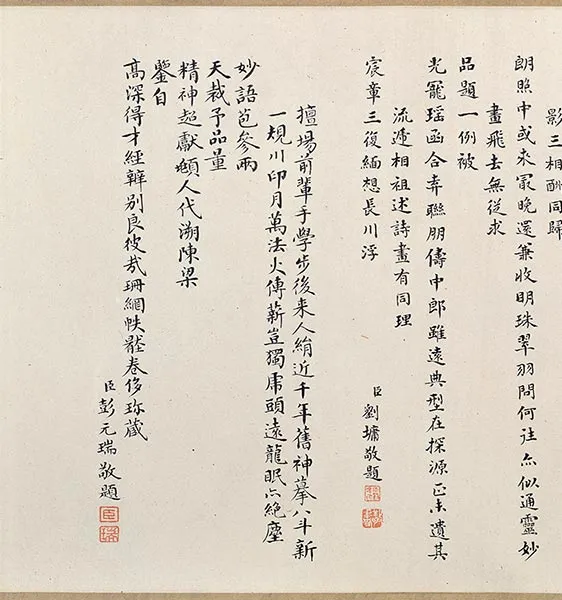 影三相酬同歸
朗照中或來冣晚還兼收明珠翠羽問何往亦似通靈妙
畫飛去無從求
品題一例被
光寵瑤函合弆聯朋儔中郎雖遠典型在探源正未遺其
流遞相祖述詩畫有同理
宸章三復緬想長川浮
臣劉墉敬題
擅場前輩手學步後来人絹近千年舊神摹八斗新
一規川印月萬法火傳薪豈獨虎頭遠龍眠亦絕塵
妙語苞參兩
天裁予品量
精神超獻人代溯陳梁
鑒自
高深得才經辨别良彼哉珊網帙卷侈珍藏
臣彭元瑞敬題